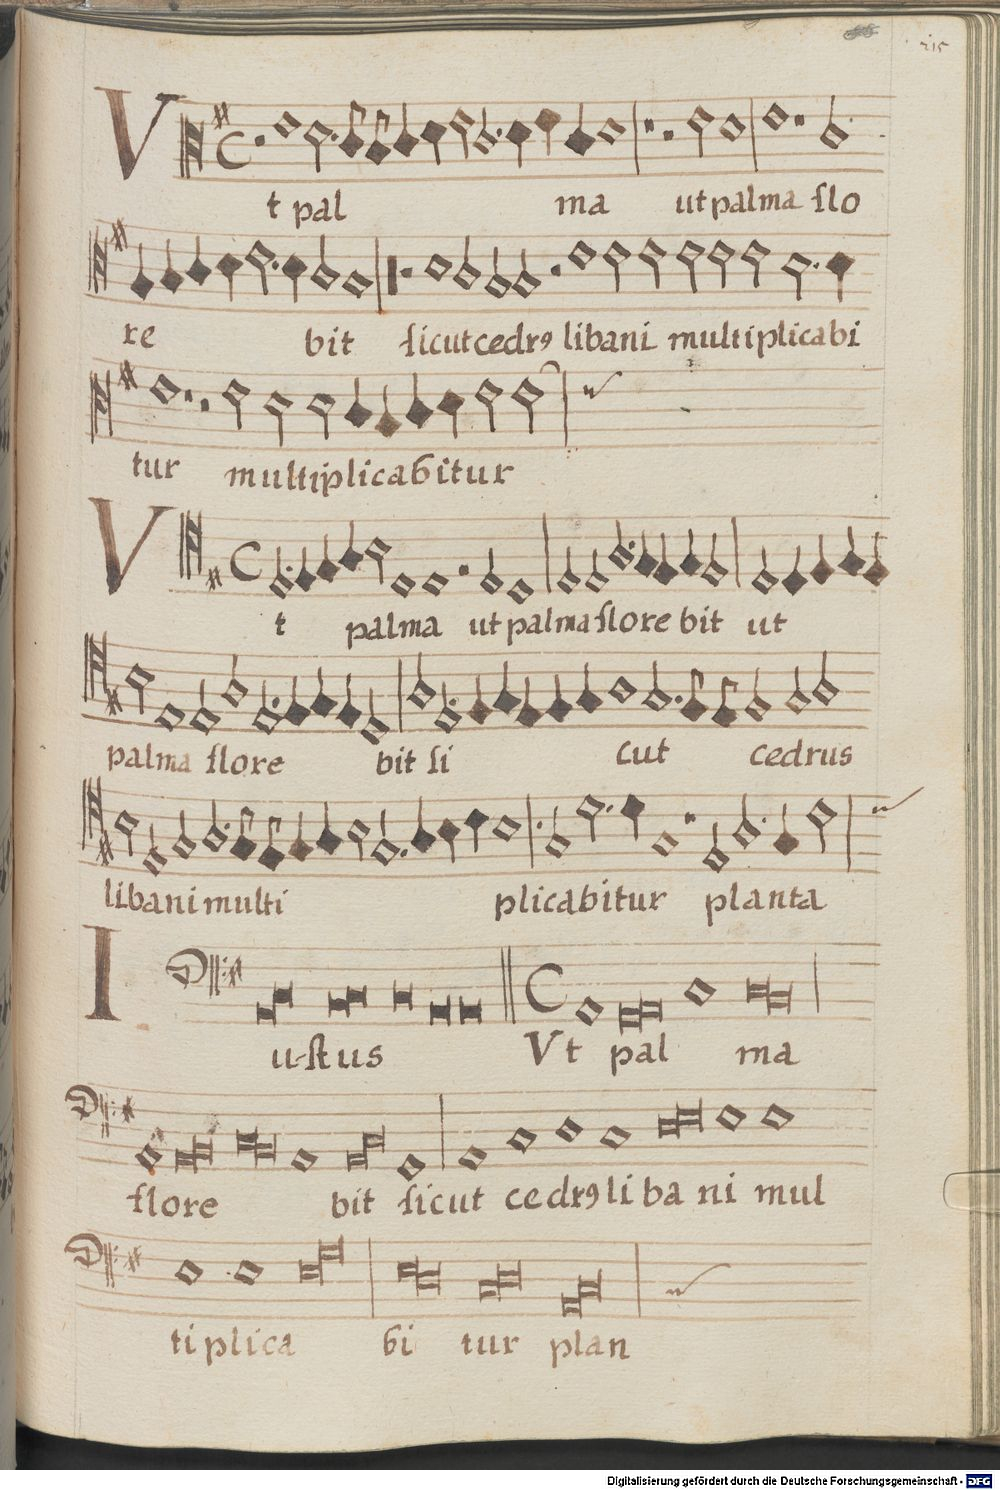 215
V t pal ma ut palma flo
re bit sicut cedrꝯ libani multiplicabi
tur multiplicabitur
V t palma ut palma flore bit ut
palma flore bit si cut cedrus
libani multi plicabitur planta
I u-stus Vt pal ma
flore bit sicut cedrꝯ li ba ni mul
ti plica bi tur plan
Digitalisierung gefördert durch die Deutsche Forschungsgemeinschaft - DFG